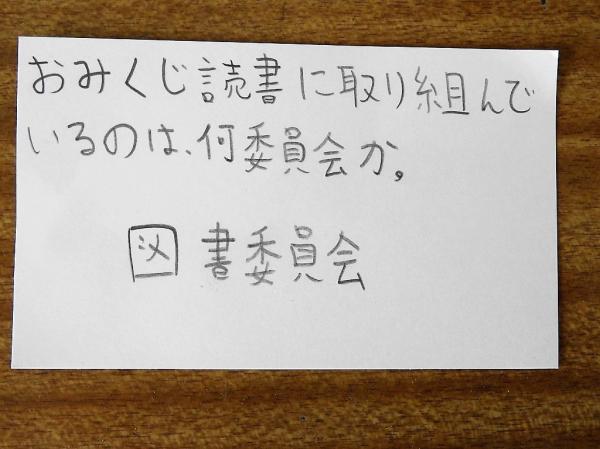 おみくじ読書に取り組んで
いるのは、何委員会か。
図書委員会